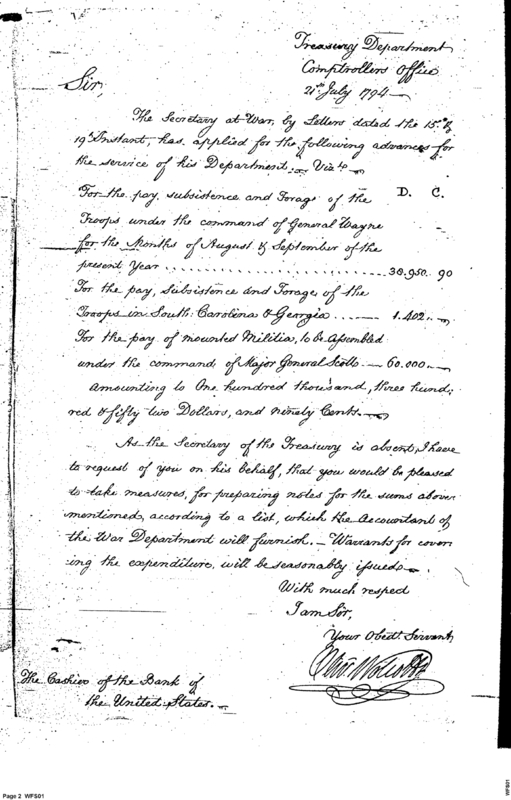 Treasury Department
Comptrollers Office
21st July 1794
Sir,
The Secretary at War, by Letters dated the 15th &
19th Instant, has applied for the following advances for
the service of his Department:
For the pay, subsistence and Forage of the D. C.
Troops under the command of General Wayne
for the Months of August & September of the
present Year .................. 38,950.. 90
For the pay, Subsistence and Forage, of the
Troops in South Carolina & Georgia ...... 1.402..
For the pay of mounted Militia, to be Assembled
under the command of Major General Scott — 60.000..
amounting to One hundred thousand, three hund:
red & fifty two Dollars, and ninety Cents.
As the Secretary of the Treasury is absent, I have
to request of you on his behalf, that you would be pleased
to take measures, for preparing notes for the sums above
mentioned, according to a list, which the Accountant of
the War Department will furnish. — Warrants for cover
ing the expenditure, will be seasonably issued.
With much respect
I am Sir,
Your Obedt. Servant,
Olivr. Wolcott
The Cashier of the Bank of
the United States.
Page 2 WFS01
WFS01